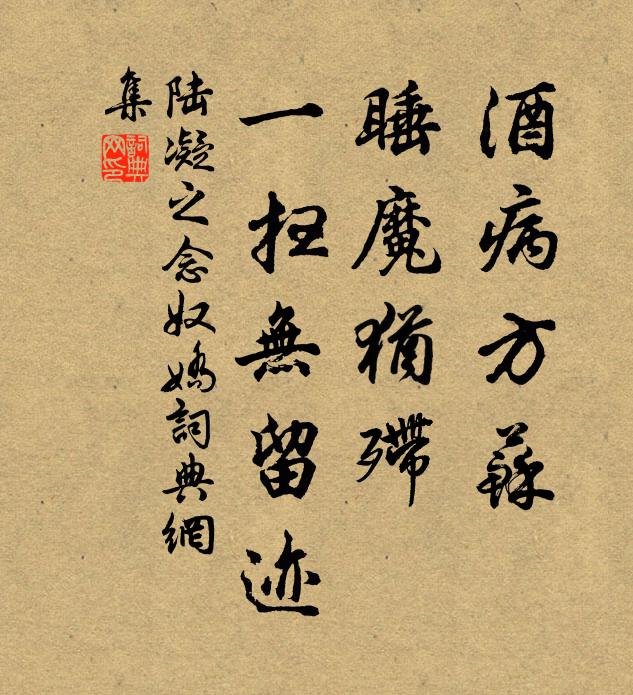 酒病方蘇
睡魔猶殢
一扫無留迹
陸凝之念奴嬌詞典網
集
詞典網印